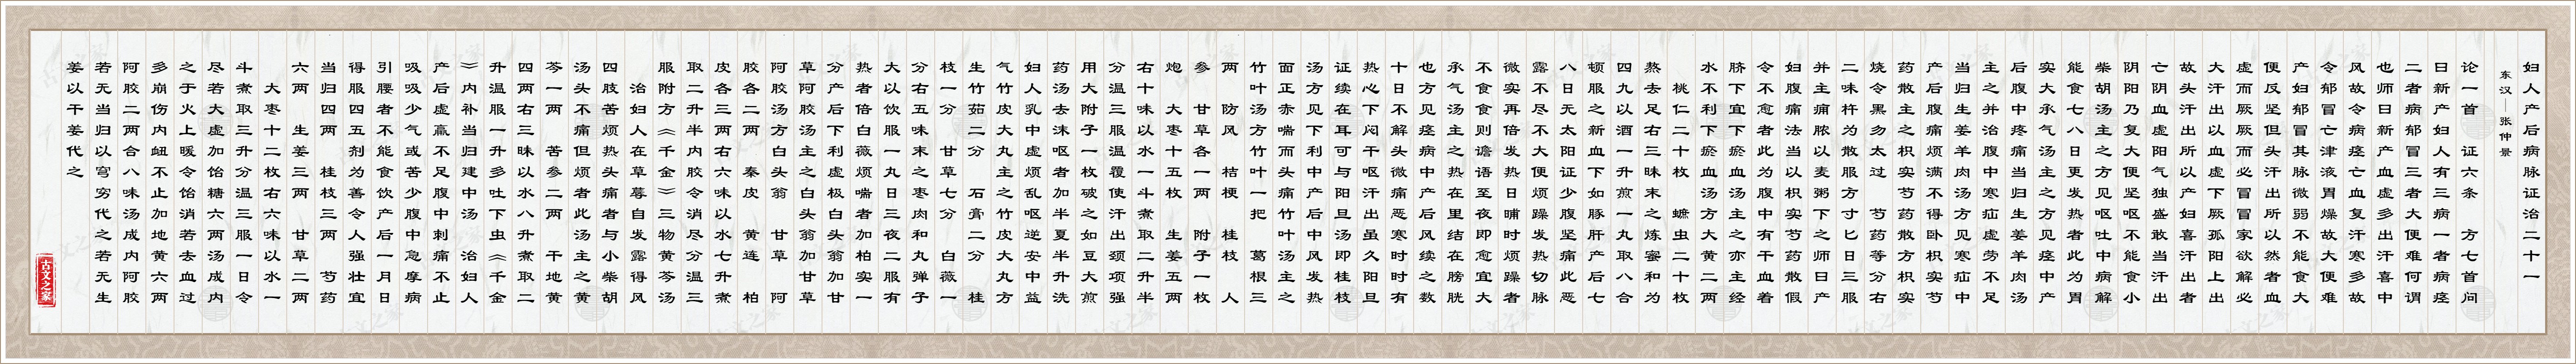 妇人产后病脉证治二十一
东汉—张仲景
论一首　证六条　方七首问
曰新产妇人有三病一者病痉
二者病郁冒三者大便难何谓
也师曰新产血虚多出汗喜中
风故令病痉亡血复汗寒多故
令郁冒亡津液胃燥故大便难
产妇郁冒其脉微弱不能食大
便反坚但头汗出所以然者血
虚而厥厥而必冒冒家欲解必
大汗出以血虚下厥孤阳上出
故头汗出所以产妇喜汗出者
亡阴血虚阳气独盛敢当汗出
阴阳乃复大便坚呕不能食小
柴胡汤主之方见呕吐中病解
能食七八日更发热者此为胃
实大承气汤主之方见痉中产
后腹中疼痛当归生姜羊肉汤
主之并治腹中寒疝虚劳不足
当归生姜羊肉汤方见寒疝中
产后腹痛烦满不得卧枳实芍
药散主之枳实芍药散方枳实
烧令黑勿太过　芍药等分右
二味杵为散服方寸匕日三服
并主痈脓以麦粥下之师曰产
妇腹痛法当以枳实芍药散假
令不愈者此为腹中有干血着
脐下宜下瘀血汤主之亦主经
水不利下瘀血汤方大黄二两
桃仁二十枚　蟅虫二十枚
熬去足右三昧末之炼蜜和为
四九以酒一升煎一丸取八合
顿服之新血下如豚肝产后七
八日无太阳证少腹坚痛此恶
露不尽不大便烦躁发热切脉
微实再倍发热日晡时烦躁者
不食食则谵语至夜即愈宜大
承气汤主之热在里结在膀胱
也方见痉病中产后风续之数
十日不解头微痛恶寒时时有
热心下闷干呕汗出虽久阳旦
证续在耳可与阳旦汤即桂枝
汤方见下利中产后中风发热
面正赤喘而头痛竹叶汤主之
竹叶汤方竹叶一把　葛根三
两　防风　桔梗　桂枝　人
参　甘草各一两　附子一枚
炮　大枣十五枚　生姜五两
右十味以水一斗煮取二升半
分温三服温覆使汗出颈项强
用大附子一枚破之如豆大煎
药汤去沫呕者加半夏半升洗
妇人乳中虚烦乱呕逆安中益
气竹皮大丸主之竹皮大丸方
生竹茹二分　石膏二分　桂
枝一分　甘草七分　白薇一
分右五味末之枣肉和丸弹子
大以饮服一丸日三夜二服有
热者倍白薇烦喘者加柏实一
分产后下利虚极白头翁加甘
草阿胶汤主之白头翁加甘草
阿胶汤方白头翁　甘草　阿
胶各二两　秦皮　黄连　柏
皮各三两右六味以水七升煮
取二升半内胶令消尽分温三
服附方《千金》三物黄芩汤
治妇人在草蓐自发露得风
四肢苦烦热头痛者与小柴胡
汤头不痛但烦者此汤主之黄
芩一两　苦参二两　干地黄
四两右三昧以水八升煮取二
升温服一升多吐下虫《千金
》内补当归建中汤　治妇人
产后虚羸不足腹中刺痛不止
吸吸少气或苦少腹中急摩病
引腰者不能食饮产后一月日
得服四五剂为善令人强壮宜
当归四两　桂枝三两　芍药
六两　生姜三两　甘草二两
大枣十二枚右六味以水一
斗煮取三升分温三服一日令
尽若大虚加饴糖六两汤成内
之于火上暖令饴消若去血过
多崩伤内衄不止加地黄六两
阿胶二两合八味汤成内阿胶
若无当归以芎䓖代之若无生
姜以干姜代之
古文之家